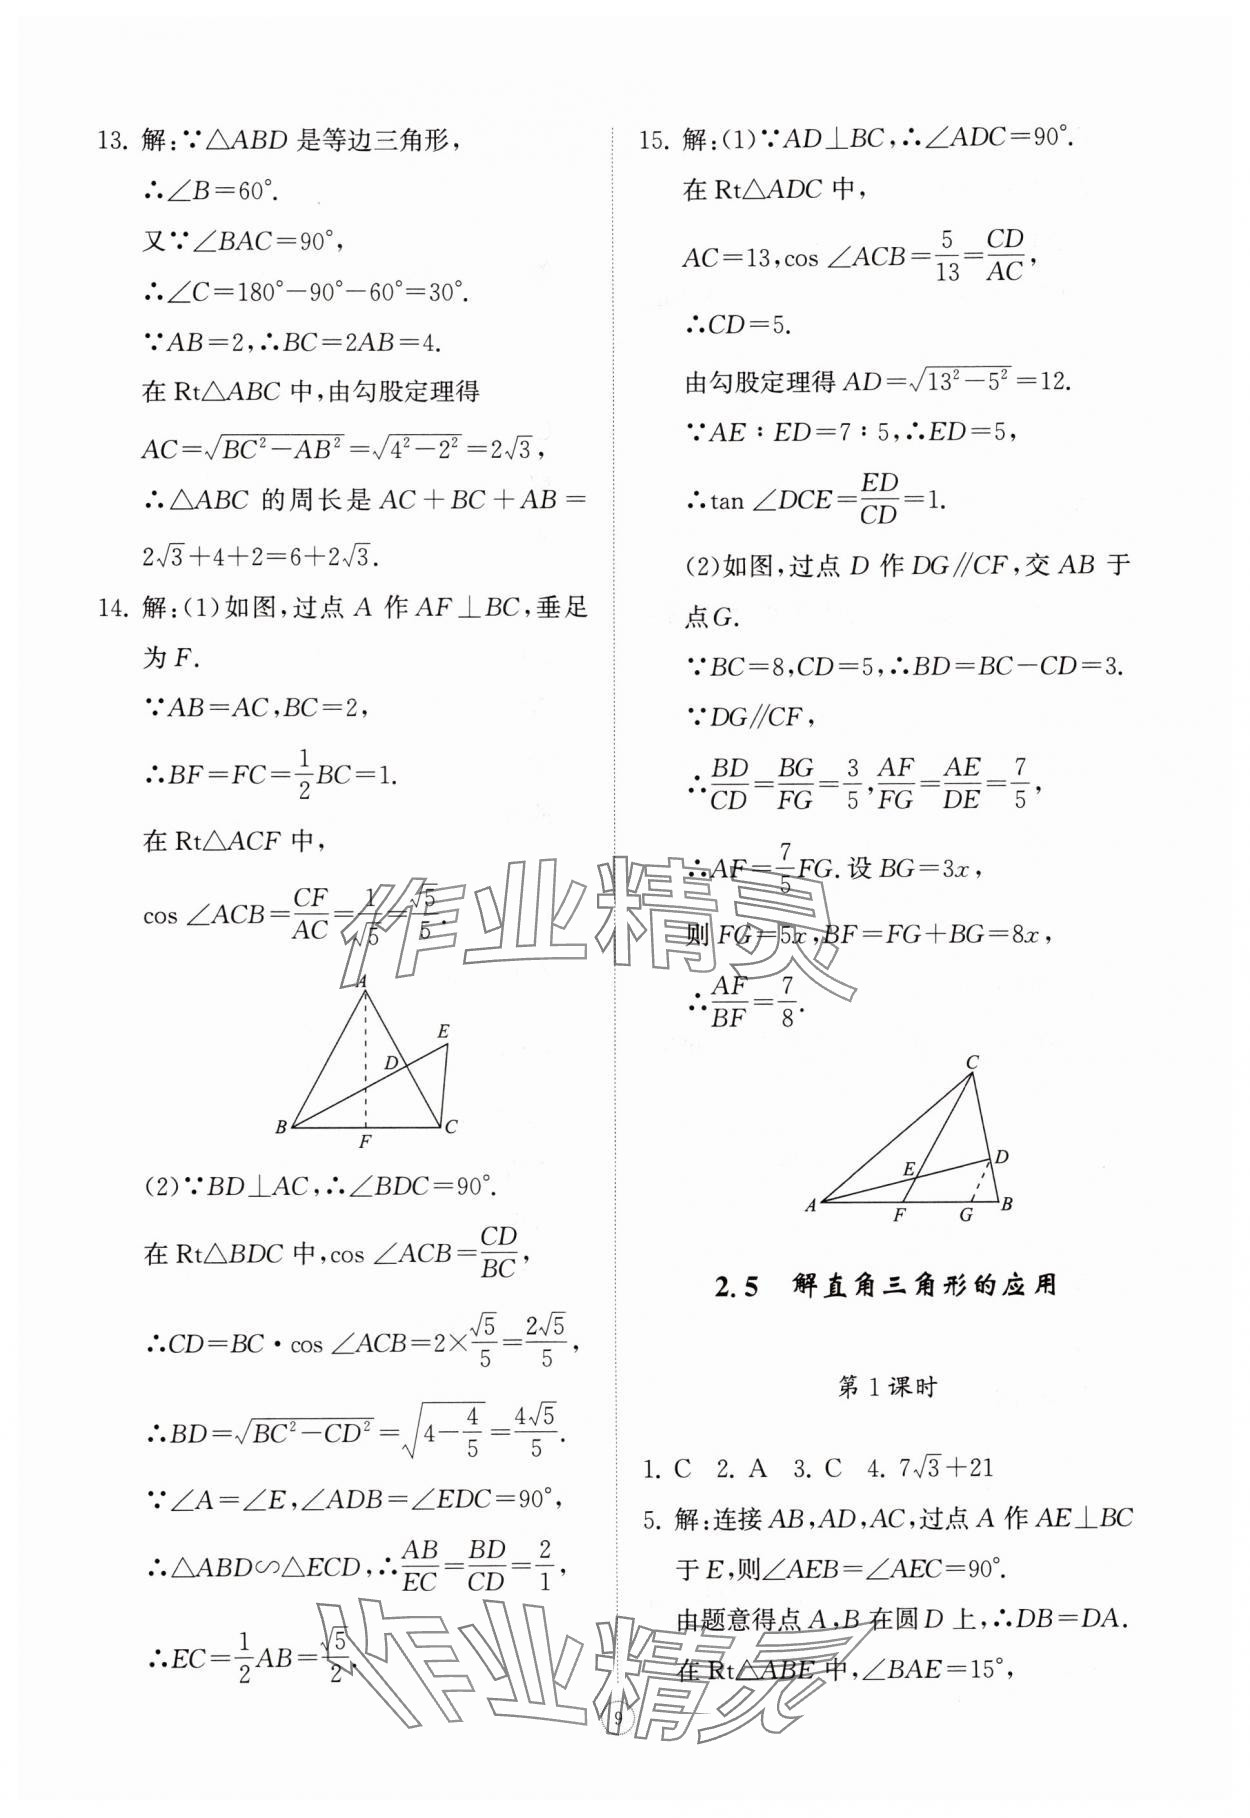 13. 解:∵△ABD 是等边三角形,
∴∠B=60°.
又∵∠BAC=90°,
∴∠C=180°-90°-60°=30°.
∵AB=2,∴BC=2AB=4.
在 Rt△ABC 中,由勾股定理得
AC=√(BC²-AB²)=√(4²-2²)=2√3,
∴△ABC 的周长是 AC+BC+AB=
2√3+4+2=6+2√3.
14. 解:(1)如图,过点 A 作 AF⊥BC,垂足
为 F.
∵AB=AC,BC=2,
∴BF=FC=1/2BC=1.
在 Rt△ACF 中,
cos∠ACB=CF/AC=1/√5=√5/5.
A
E
D
B
F
C
(2)∵BD⊥AC,∴∠BDC=90°.
在 Rt△BDC 中,cos∠ACB=CD/BC,
∴CD=BC·cos∠ACB=2×√5/5=2√5/5,
∴BD=√(BC²-CD²)=√(4-4/5)=4√5/5.
∵∠A=∠E,∠ADB=∠EDC=90°,
∴△ABD∽△ECD,∴AB/EC=BD/CD=2/1,
∴EC=1/2AB=√5/2.
15. 解:(1)∵AD⊥BC,∴∠ADC=90°.
在 Rt△ADC 中,
AC=13,cos∠ACB=5/13=CD/AC,
∴CD=5.
由勾股定理得 AD=√(13²-5²)=12.
∵AE∶ED=7∶5,∴ED=5,
∴tan∠DCE=ED/CD=1.
(2)如图,过点 D 作 DG∥CF,交 AB 于
点G.
∵BC=8,CD=5,∴BD=BC-CD=3.
∵DG∥CF,
∴BD/CD=BG/FG=3/5,AF/FG=AE/DE=7/5,
∴AF=7/5FG.设 BG=3x,
则 FG=5x,BF=FG+BG=8x,
∴AF/BF=7/8.
C
E
D
A
F
G
B
2.5 解直角三角形的应用
第1课时
1. C 2. A 3. C 4. 7√3+21
5. 解:连接 AB,AD,AC,过点 A 作 AE⊥BC
于 E,则∠AEB=∠AEC=90°.
由题意得点 A,B 在圆 D 上,∴DB=DA.
在 Rt△ABE 中,∠BAE=15°,
9
作业精灵
作业精灵